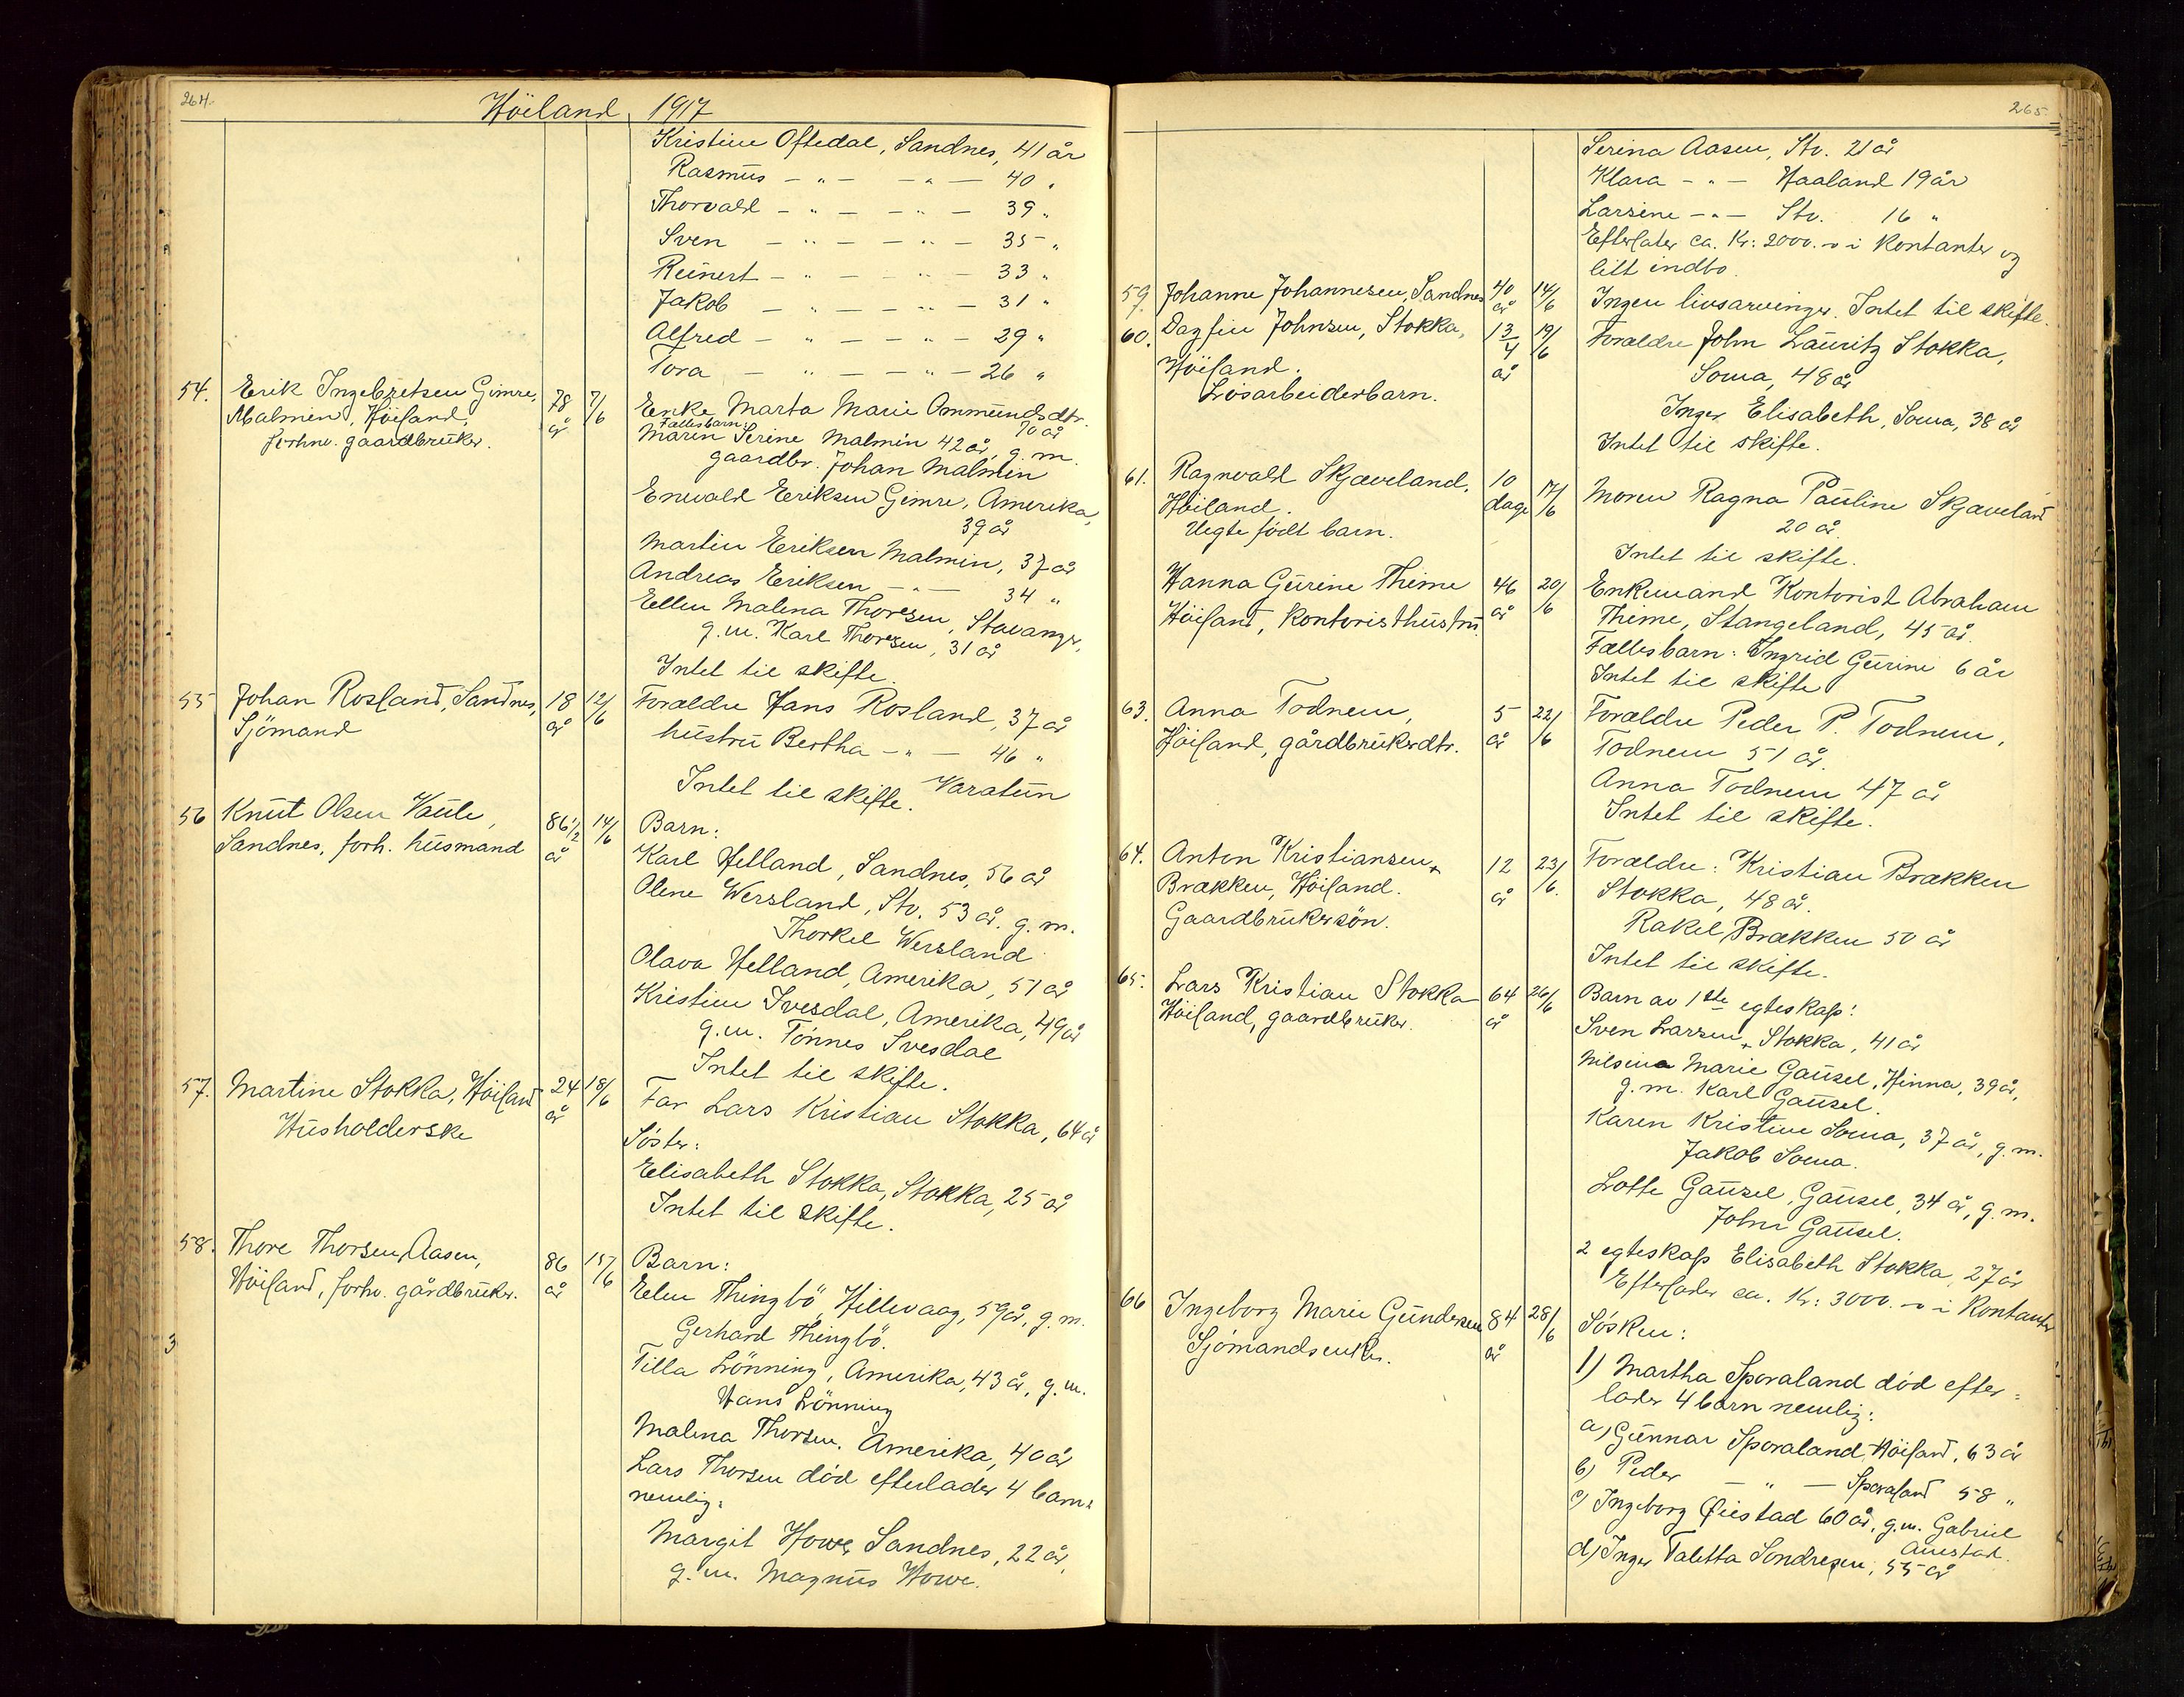 264.
Höiland 1917
Kristine Oftedal, Sandnes, 41 år
Rasmus - " - - " - 40 "
Thorvald - " - - " - 39 "
Sven - " - - " - 35 "
Reinert - " - - " - 33 "
Jakob - " - - " - 31 "
Alfred - " - - " - 29 "
Tora - " - - " - 26 "
54. Erik Ingebretsen Gimre, 78 år 7/6
Malmin, Höiland,
forhnv. gaardbruker.
Enke Marta Marie Ommundsdtr.
70 år
Fællesbarn:
Maren Serine Malmin 42 år, g. m.
gaardbr. Johan Malmin
Enevald Eriksen Gimre, Amerika,
39 år
Martin Eriksen Malmin, 37 år
Andreas Eriksen - " - 34 "
Ellen Malena Thorsen, Stavanger,
g.m. Karl Thorsen, 31 år
Intet til skifte.
55 Johan Rosland, Sandnes, 18 år 12/6
Sjömand
Forældre Hans Rosland, 37 år
hustru Bertha - " - 46 "
Varatun
Intet til skifte.
56 Knut Olsen Vaule, 86 1/2 år 14/6
Sandnes, forh. husmand
Barn:
Karl Helland, Sandnes, 56 år
Olene Wersland, Stv. 53 år. g. m.
Thorkel Wersland
Olava Helland, Amerika, 51 år
Kristine Ivesdal, Amerika, 49 år
g.m. Tönnes Ivesdal
Intet til skifte.
57. Martine Stokka, Höiland 24 år 18/6
Husholderske
Far Lars Kristian Stokka, 64 år
Söster:
Elisabeth Stokka, Stokka, 25 år
Intet til skifte.
58. Thore Thorsen Aasen, 86 år 15/6
Höiland, forhv. gårdbruker.
Barn:
Elen Thingbö, Hillevaag, 59 år, g. m.
Gerhard Thingbö.
Tilla Lönning, Amerika, 43 år, g. m.
Hans Lönning
Malena Thorsen, Amerika, 40 år
Lars Thorsen död efterlader 4 barn
nemlig:
Margit Howe, Sandnes, 22 år,
g. m. Magnus Howe.
3
265
Serina Aasen, Stv. 21 år
Klara - " - Haaland 19 år
Larsine - " - Stv. 16 "
Efterlater ca. Kr: 2000.- i kontanter og
litt indbo.
59. Johanne Johannesen, Sandnes 40 år 14/6
Ingen livsarvinger. Intet til skifte.
60. Dagfin Johnsen, Stokka, 1 3/4 år 19/6
Höiland.
Lösarbeiderbarn.
Forældre John Lauritz Stokka,
Soma, 48 år
Inger Elisabeth, Soma, 38 år
Intet til skifte.
61. Ragnvald Skjæveland, 10 dage 17/6
Höiland.
Uegte födt barn.
Moren Ragna Pauline Skjæveland
20 år.
Intet til skifte.
Hanna Gurine Thime 46 år 20/6
Höiland, kontoristhustru
Enkemand Kontorist Abraham
Thime, Stangeland, 45 år.
Fællesbarn: Ingrid Gurine 6 år
Intet til skifte
63. Anna Todnem, 5 år 22/6
Höiland, gårdbrukerdtr.
Forældre Peder P. Todnem,
Todnem 51 år.
Anna Todnem 47 år
Intet til skifte.
64. Anton Kristiansen 12 år 23/6.
Brækken, Höiland.
Gaardbrukersön.
Forældre: Kristian Brækken
Stokka, 48 år.
Rakel Brækken 50 år
Intet til skifte.
65. Lars Kristian Stokka 64 år 26/6
Höiland, gaardbruker.
Barn av 1ste egteskap:
Sven Larsen, Stokka, 41 år
Nilsina Marie Gausel, Hinna, 39 år,
g. m. Karl Gausel.
Karen Kristine Soma, 37 år, g. m.
Jakob Soma.
Lotte Gausel, Gausel, 34 år, g. m.
John Gausel.
2 egteskap Elisabeth Stokka, 27 år
Efterlader ca. Kr: 3000.- i kontanter
66 Ingeborg Marie Gundersen 84 år 28/6
Sjömandsenke.
Sösken:
1) Martha Sporaland död efter=
lader 4 barn nemlig:
a) Gunnar Sporaland, Höiland, 63 år
b) Peder - " - Sporaland 58 "
c) Ingeborg Øiestad 60 år, g.m. Gabriel
Auestad.
d) Inger Taletta Sondresen, 55 år